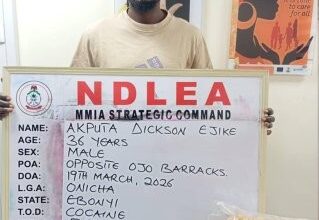 to care
for all
NDLEA
MMIA STRATEGIC COMMAND
NAME: AKPUTA DICKSON EJIKE
AGE: 36 YEARS
SEX: MALE
POA: OPPOSITE OJO BARRACKS.
DOA: 19TH MARCH, 2026
L.G.A: ONICHA
STATE: EBONYI
T.O.D: COCAINE